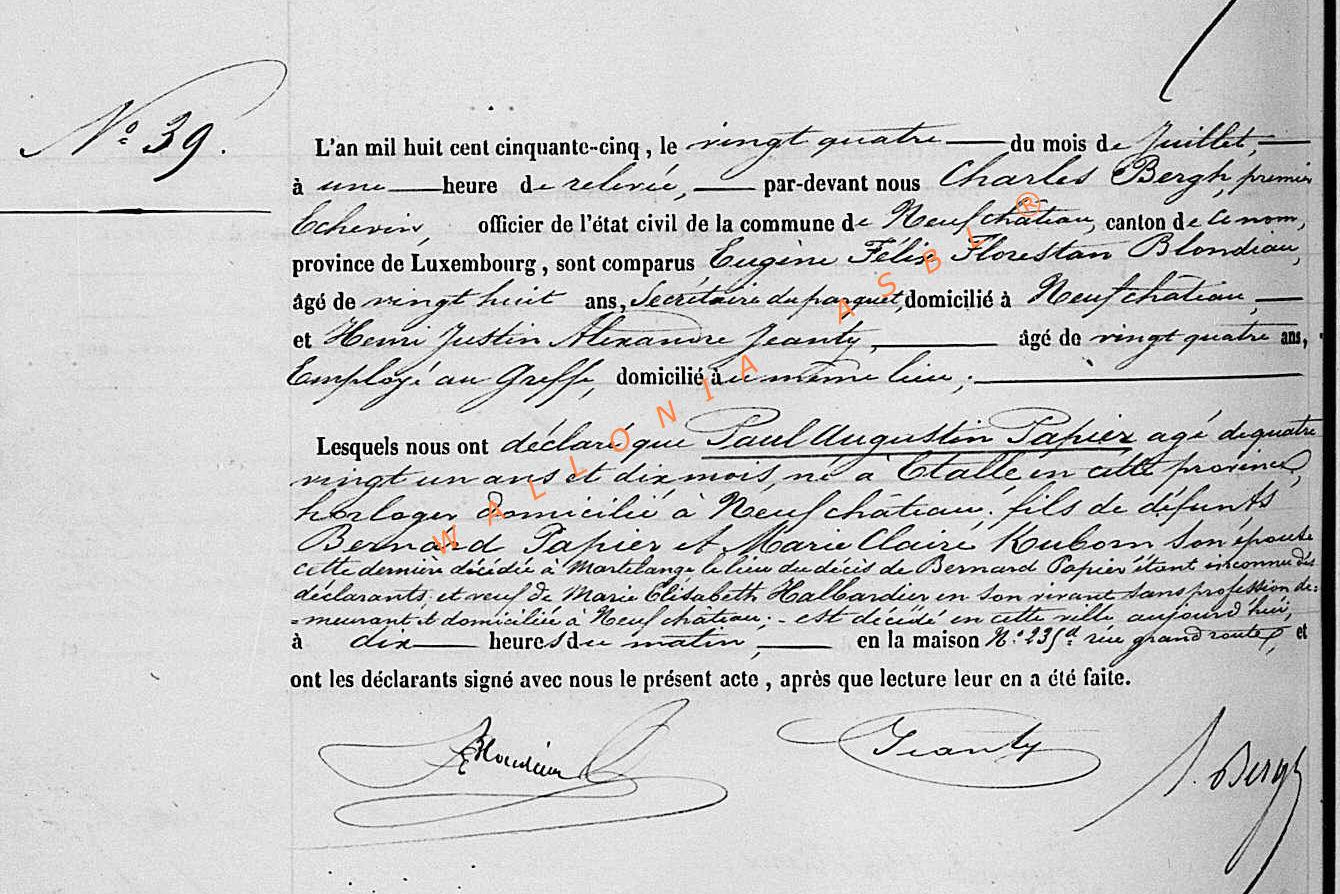 N.o 39.
L'an mil huit cent cinquante-cinq, le vingt quatre du mois de Juillet,
à une heure de relevée, par-devant nous Charles Bergh, premier
Echevin, officier de l'état civil de la commune de Neufchâteau, canton de ce nom,
province de Luxembourg, sont comparus Eugène Félix Florestan Blondiau,
âgé de vingt huit ans, Secrétaire du parquet, domicilié à Neufchâteau,
et Henri Justin Alexandre Jeanty, âgé de vingt quatre ans,
Employé au Greffe, domicilié au même lieu;
Lesquels nous ont déclaré que Paul Augustin Papier, agé de quatre
vingt un ans et dix mois, né à Etalle en cette province,
horloger domicilié à Neufchâteau; fils de défunts
Bernard Papier et Marie Claire Kuborn son épouse
cette dernière décédée à Martelange le lieu du décès de Bernard Papier étant inconnu des
déclarants et veuf de Marie Elisabeth Halbardier en son vivant sans profession de=
=meurant et domiciliée à Neufchâteau; - est décédé en cette ville aujourd'hui,
à dix heures du matin, en la maison N.o 235 rue grand route, et
ont les déclarants signé avec nous le présent acte, après que lecture leur en a été faite.
Blondiau Jeanty Bergh
WALLONIA ASBL ®